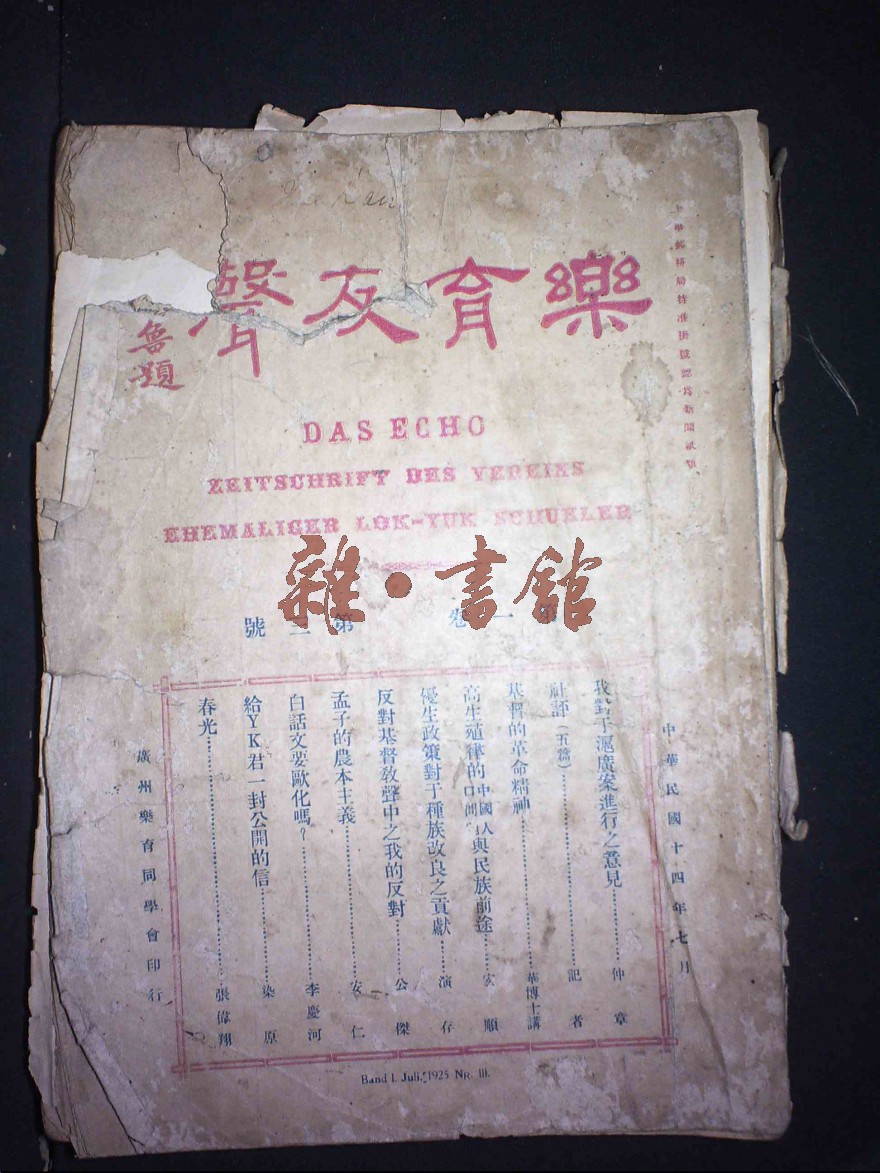 樂育友聲
魯題
中華郵務局特准掛號認爲新聞紙類
DAS ECHO
ZEITSCHRIFT DES VEREINS
EHEMALIGER LOK-YUK SCHUELER
雜·書館
第一卷 第三號
中華民國十四年七月
我對于滬廣案進行之意見 仲章
社評(五篇) 記者
基督的革命精神 華博士講
高生殖律的中國人與民族前途 順
優生政策對于種族改良之貢獻 演存
反對基督敎聲中之我的反對 公傑
孟子的農本主義 安仁
白話文要歐化嗎? 李慶河
給YK君一封公開的信 染原
春光 張偉翔
廣州樂育同學會印行
Band I. Juli, 1925 NR. III.